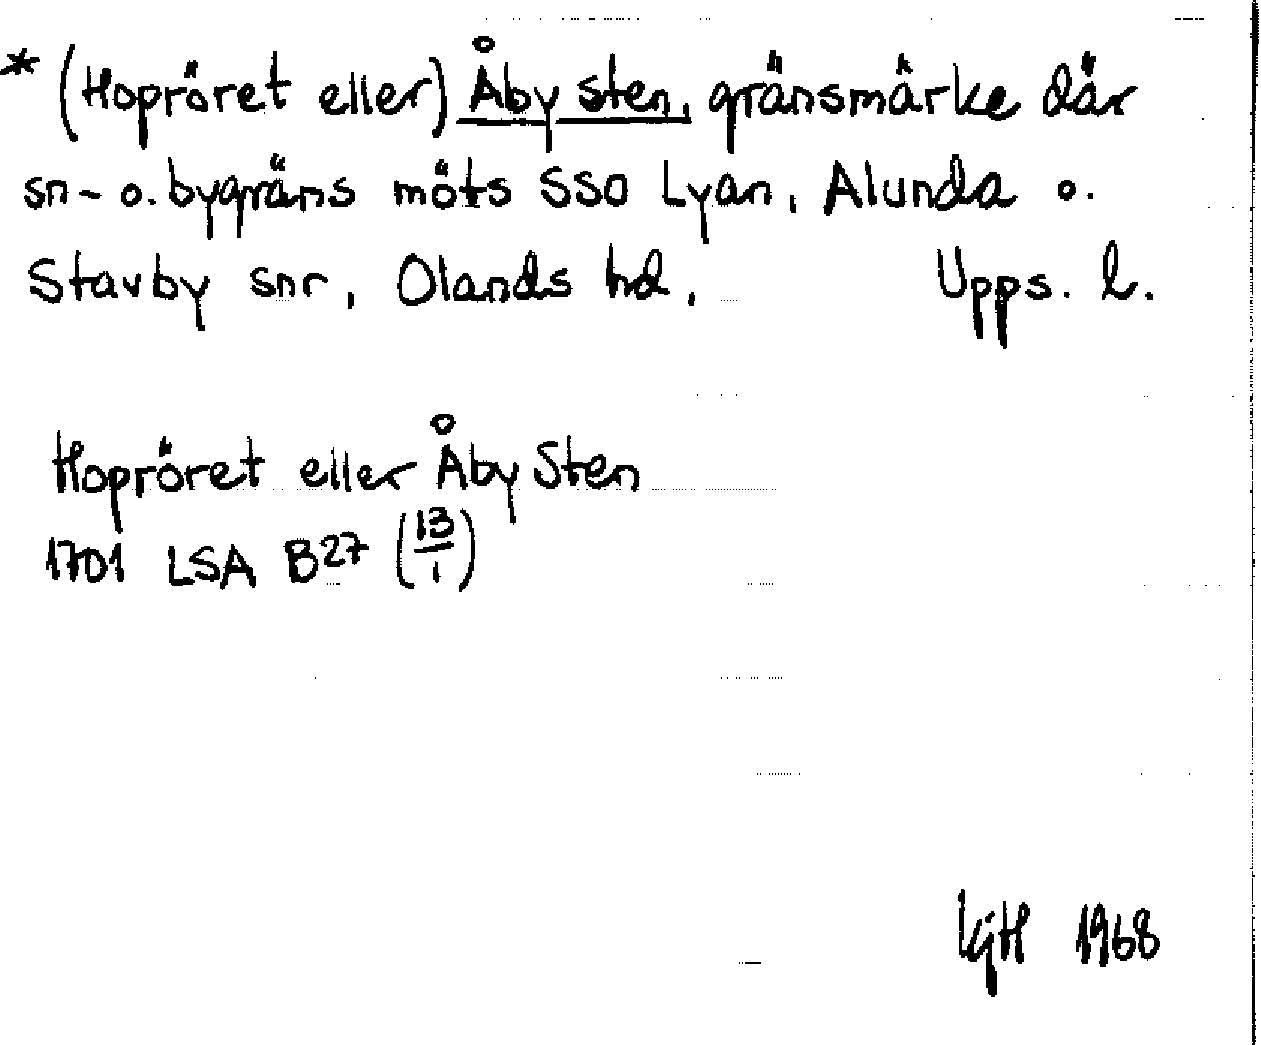 * (Hopröret eller) Åby sten, gränsmärke där
sn- o. bygräns möts SSO Lyan, Alunda o.
Stavby snr, Olands hd, Upps. l.
Hopröret eller Åby Sten
1701 LSA B27 (13/1)
KjH 1968